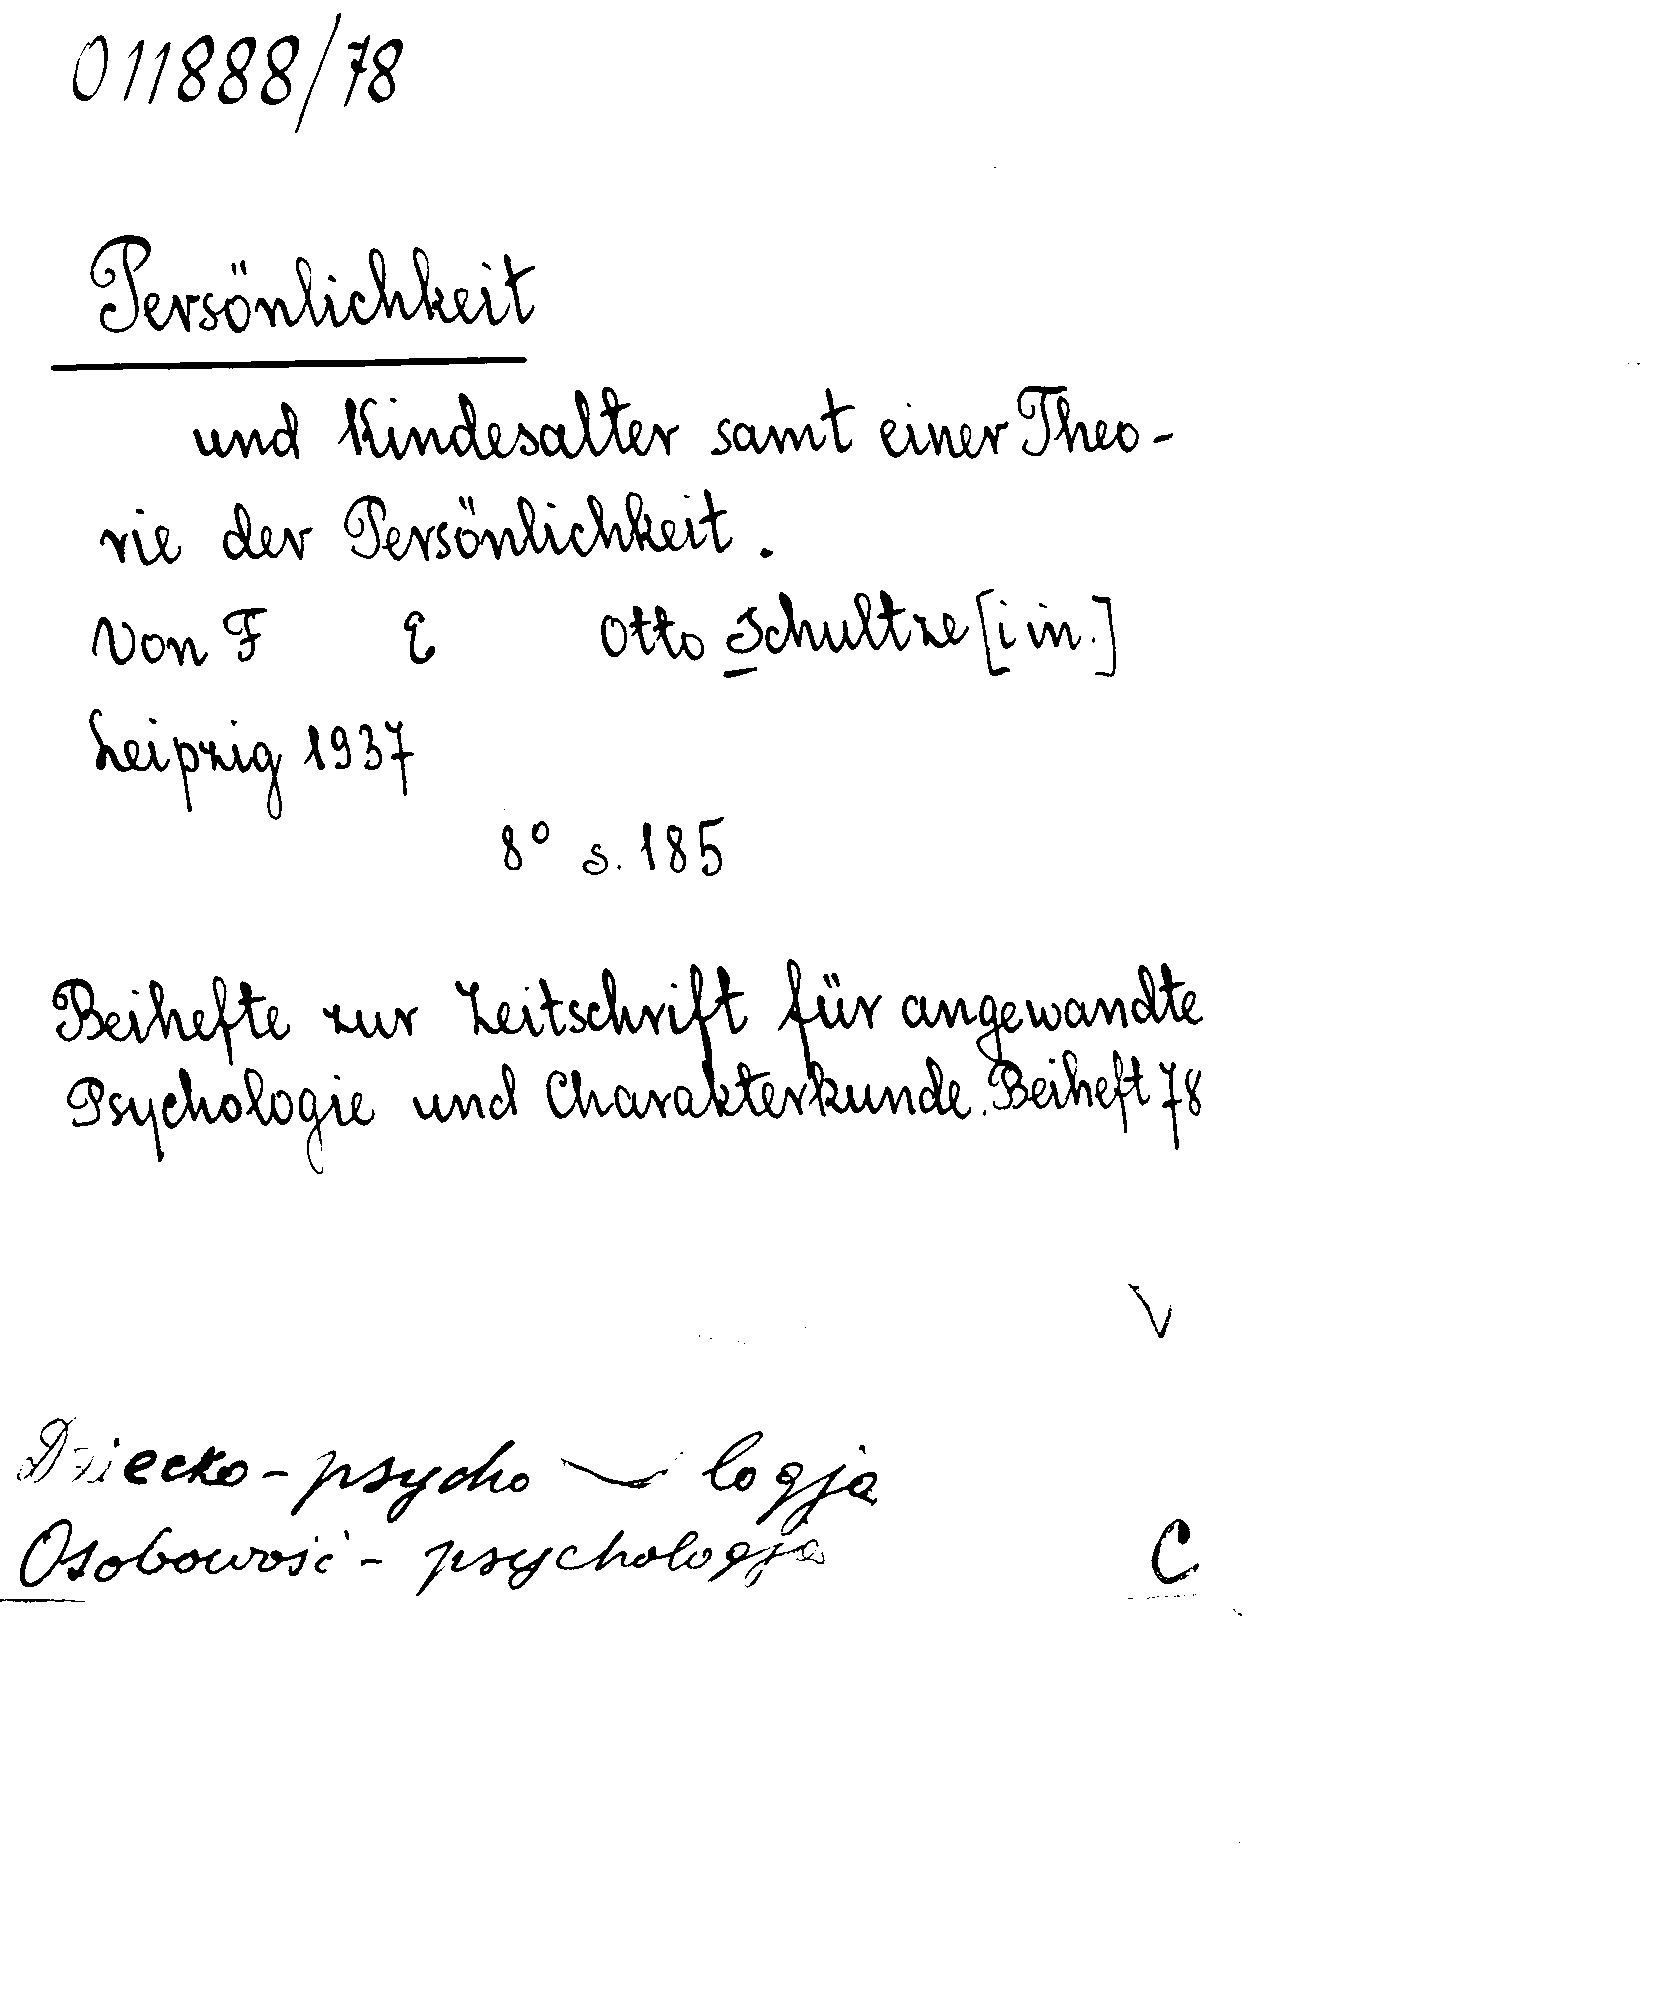 011888/78
Persönlichkeit
und Kindesalter samt einer Theo-
rie der Persönlichkeit.
Von F E Otto Schultze [i in.]
Leipzig 1937
8° s. 185
Beihefte zur Zeitschrift für angewandte
Psychologie und Charakterkunde. Beiheft 78
V
Dziecko - psycho logja
Osobowość - psychologja C